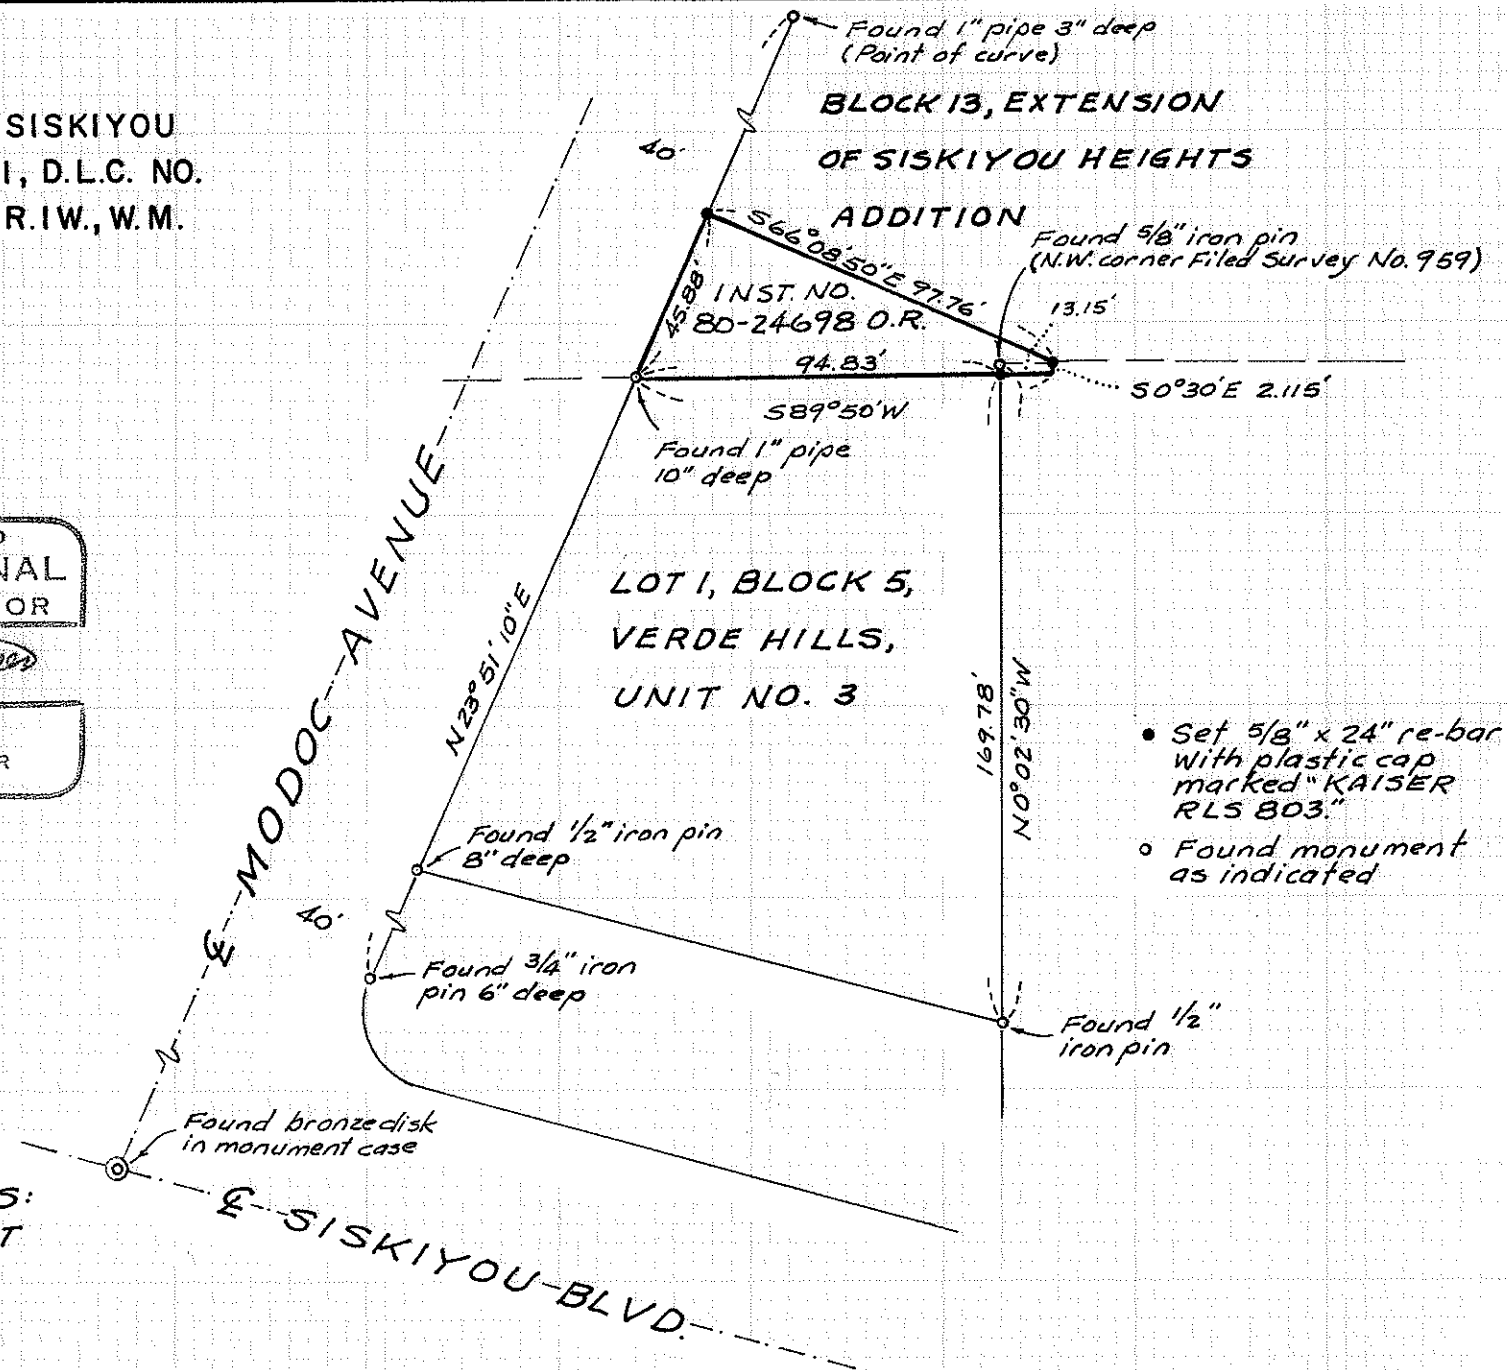 Found 1" pipe 3" deep
(Point of curve)
BLOCK 13, EXTENSION
OF SISKIYOU HEIGHTS
ADDITION
SISKIYOU
1, D.L.C. NO.
R.1W., W.M.
40'
S66°08'50"E 97.76'
Found 5/8" iron pin
(N.W. corner Filed Survey No. 959)
13.15'
45.88'
INST. NO.
80-24698 O.R.
94.83'
S89°50'W
S0°30'E 2.115'
Found 1" pipe
10" deep
NAL
OR
R
MODOC AVENUE
N23°51'10"E
LOT 1, BLOCK 5,
VERDE HILLS,
UNIT NO. 3
169.78'
N0°02'30"W
• Set 5/8" x 24" re-bar
with plastic cap
marked "KAISER
RLS 803."
○ Found monument
as indicated
Found 1/2" iron pin
8" deep
40'
℄
Found 3/4" iron
pin 6" deep
Found 1/2"
iron pin
Found bronze disk
in monument case
S:
T
℄ SISKIYOU BLVD.